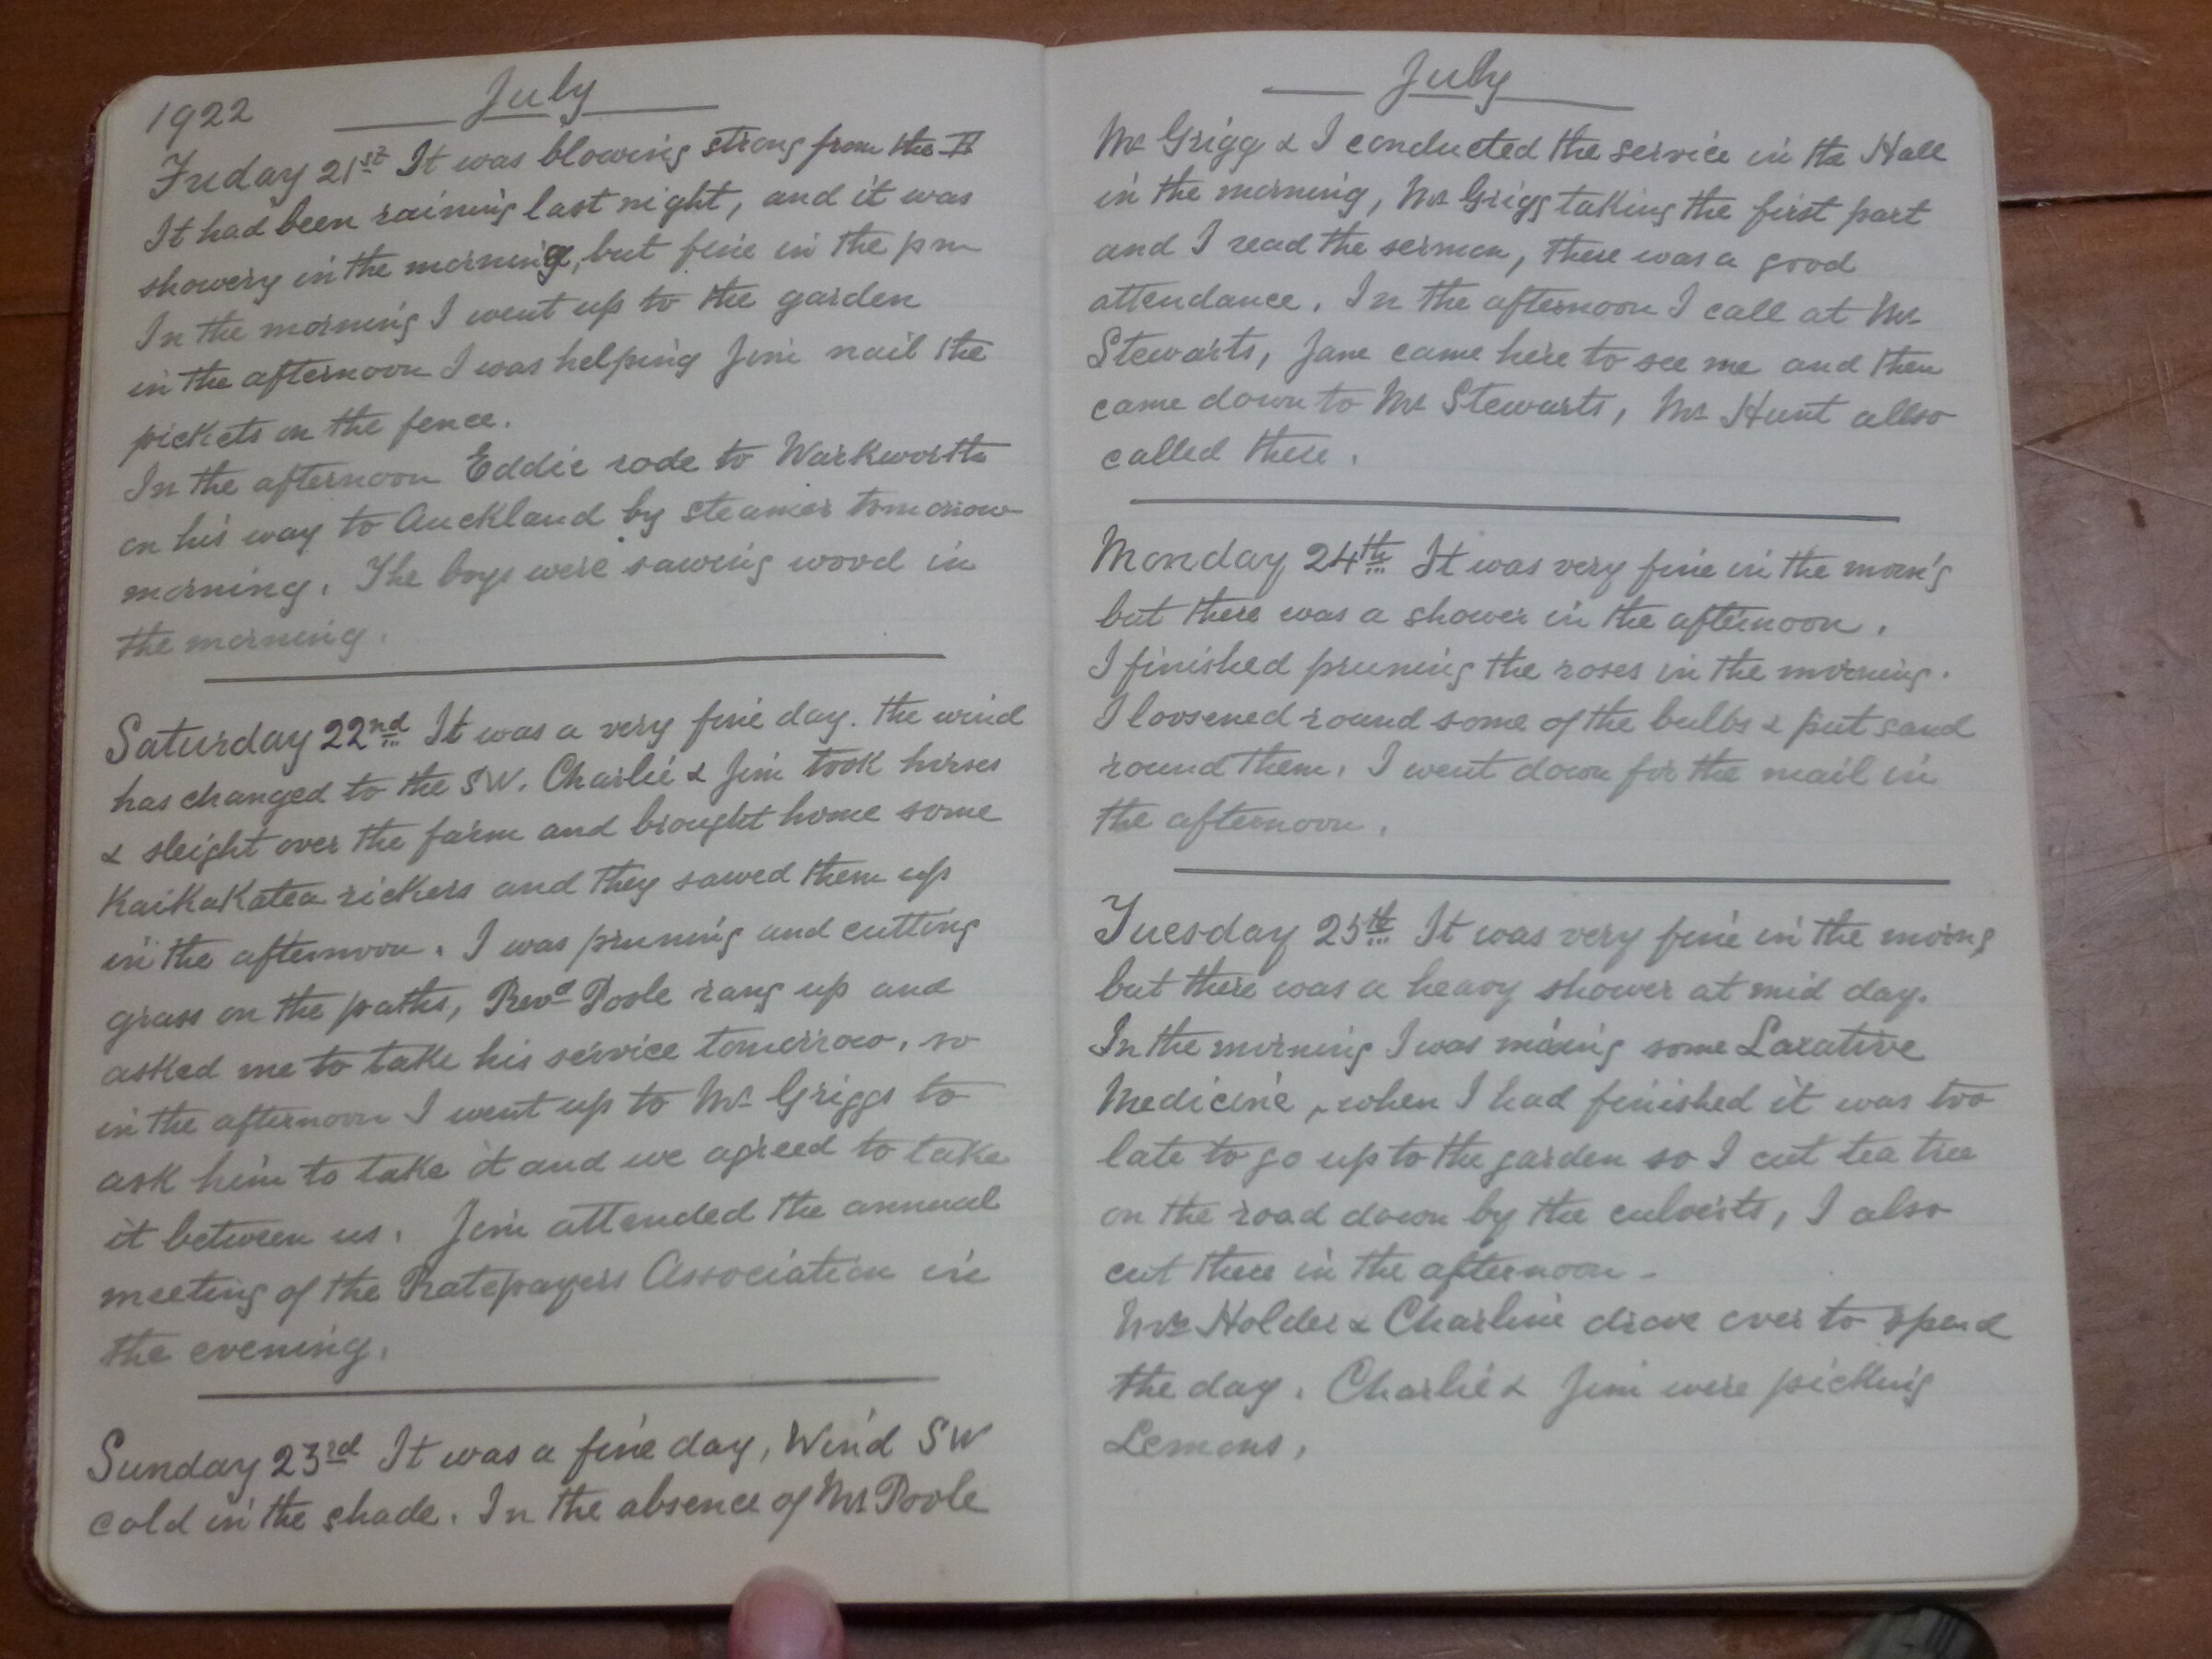 1922
July
Friday 21st It was blowing strong from the
It had been raining last night, and it was
showery in the morning, but fine in the pm
In the morning I went up to the garden
in the afternoon I was helping Jim nail the
pickets on the fence.
In the afternoon Eddie rode to Warkworth
on his way to Auckland by steamer tomorrow
morning. The boys were sawing wood in
the morning.
Saturday 22nd It was a very fine day. the wind
has changed to the SW. Charlie & Jim took horses
& sleight over the farm and brought home some
KaiKaKatea rickers and they sawed them up
in the afternoon. I was pruning and cutting
grass on the paths, Revd Poole rang up and
asked me to take his service tomorrow, so
in the afternoon I went up to Mr Griggs to
ask him to take it and we agreed to take
it between us. Jim attended the annual
meeting of the Ratepayers Association in
the evening.
Sunday 23rd It was a fine day, Wind SW
cold in the shade. In the absence of Mr Poole
July
Mr Grigg & I conducted the service in the Hall
in the morning, Mr Grigg taking the first part
and I read the sermon, there was a good
attendance. In the afternoon I call at Mr
Stewarts, Jane came here to see me and then
came down to Mr Stewarts, Mr Hunt allso
called there.
Monday 24th It was very fine in the morn'g
but there was a shower in the afternoon.
I finished pruning the roses in the morning.
I loosened round some of the bulbs & put sand
round them. I went down for the mail in
the afternoon.
Tuesday 25th It was very fine in the morng
but there was a heavy shower at mid day.
In the morning I was mixing some Laxative
Medicine, when I had finished it was too
late to go up to the garden so I cut tea tree
on the road down by the culverts, I also
cut there in the afternoon -
Mrs Holder & Charline drove over to spend
the day. Charlie & Jim were picking
Lemons.